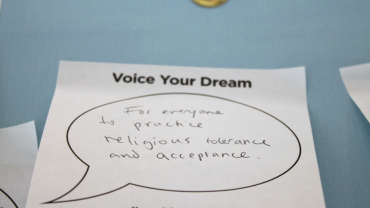 Voice Your Dream
For everyone
to practice
religious tolerance
and acceptance.